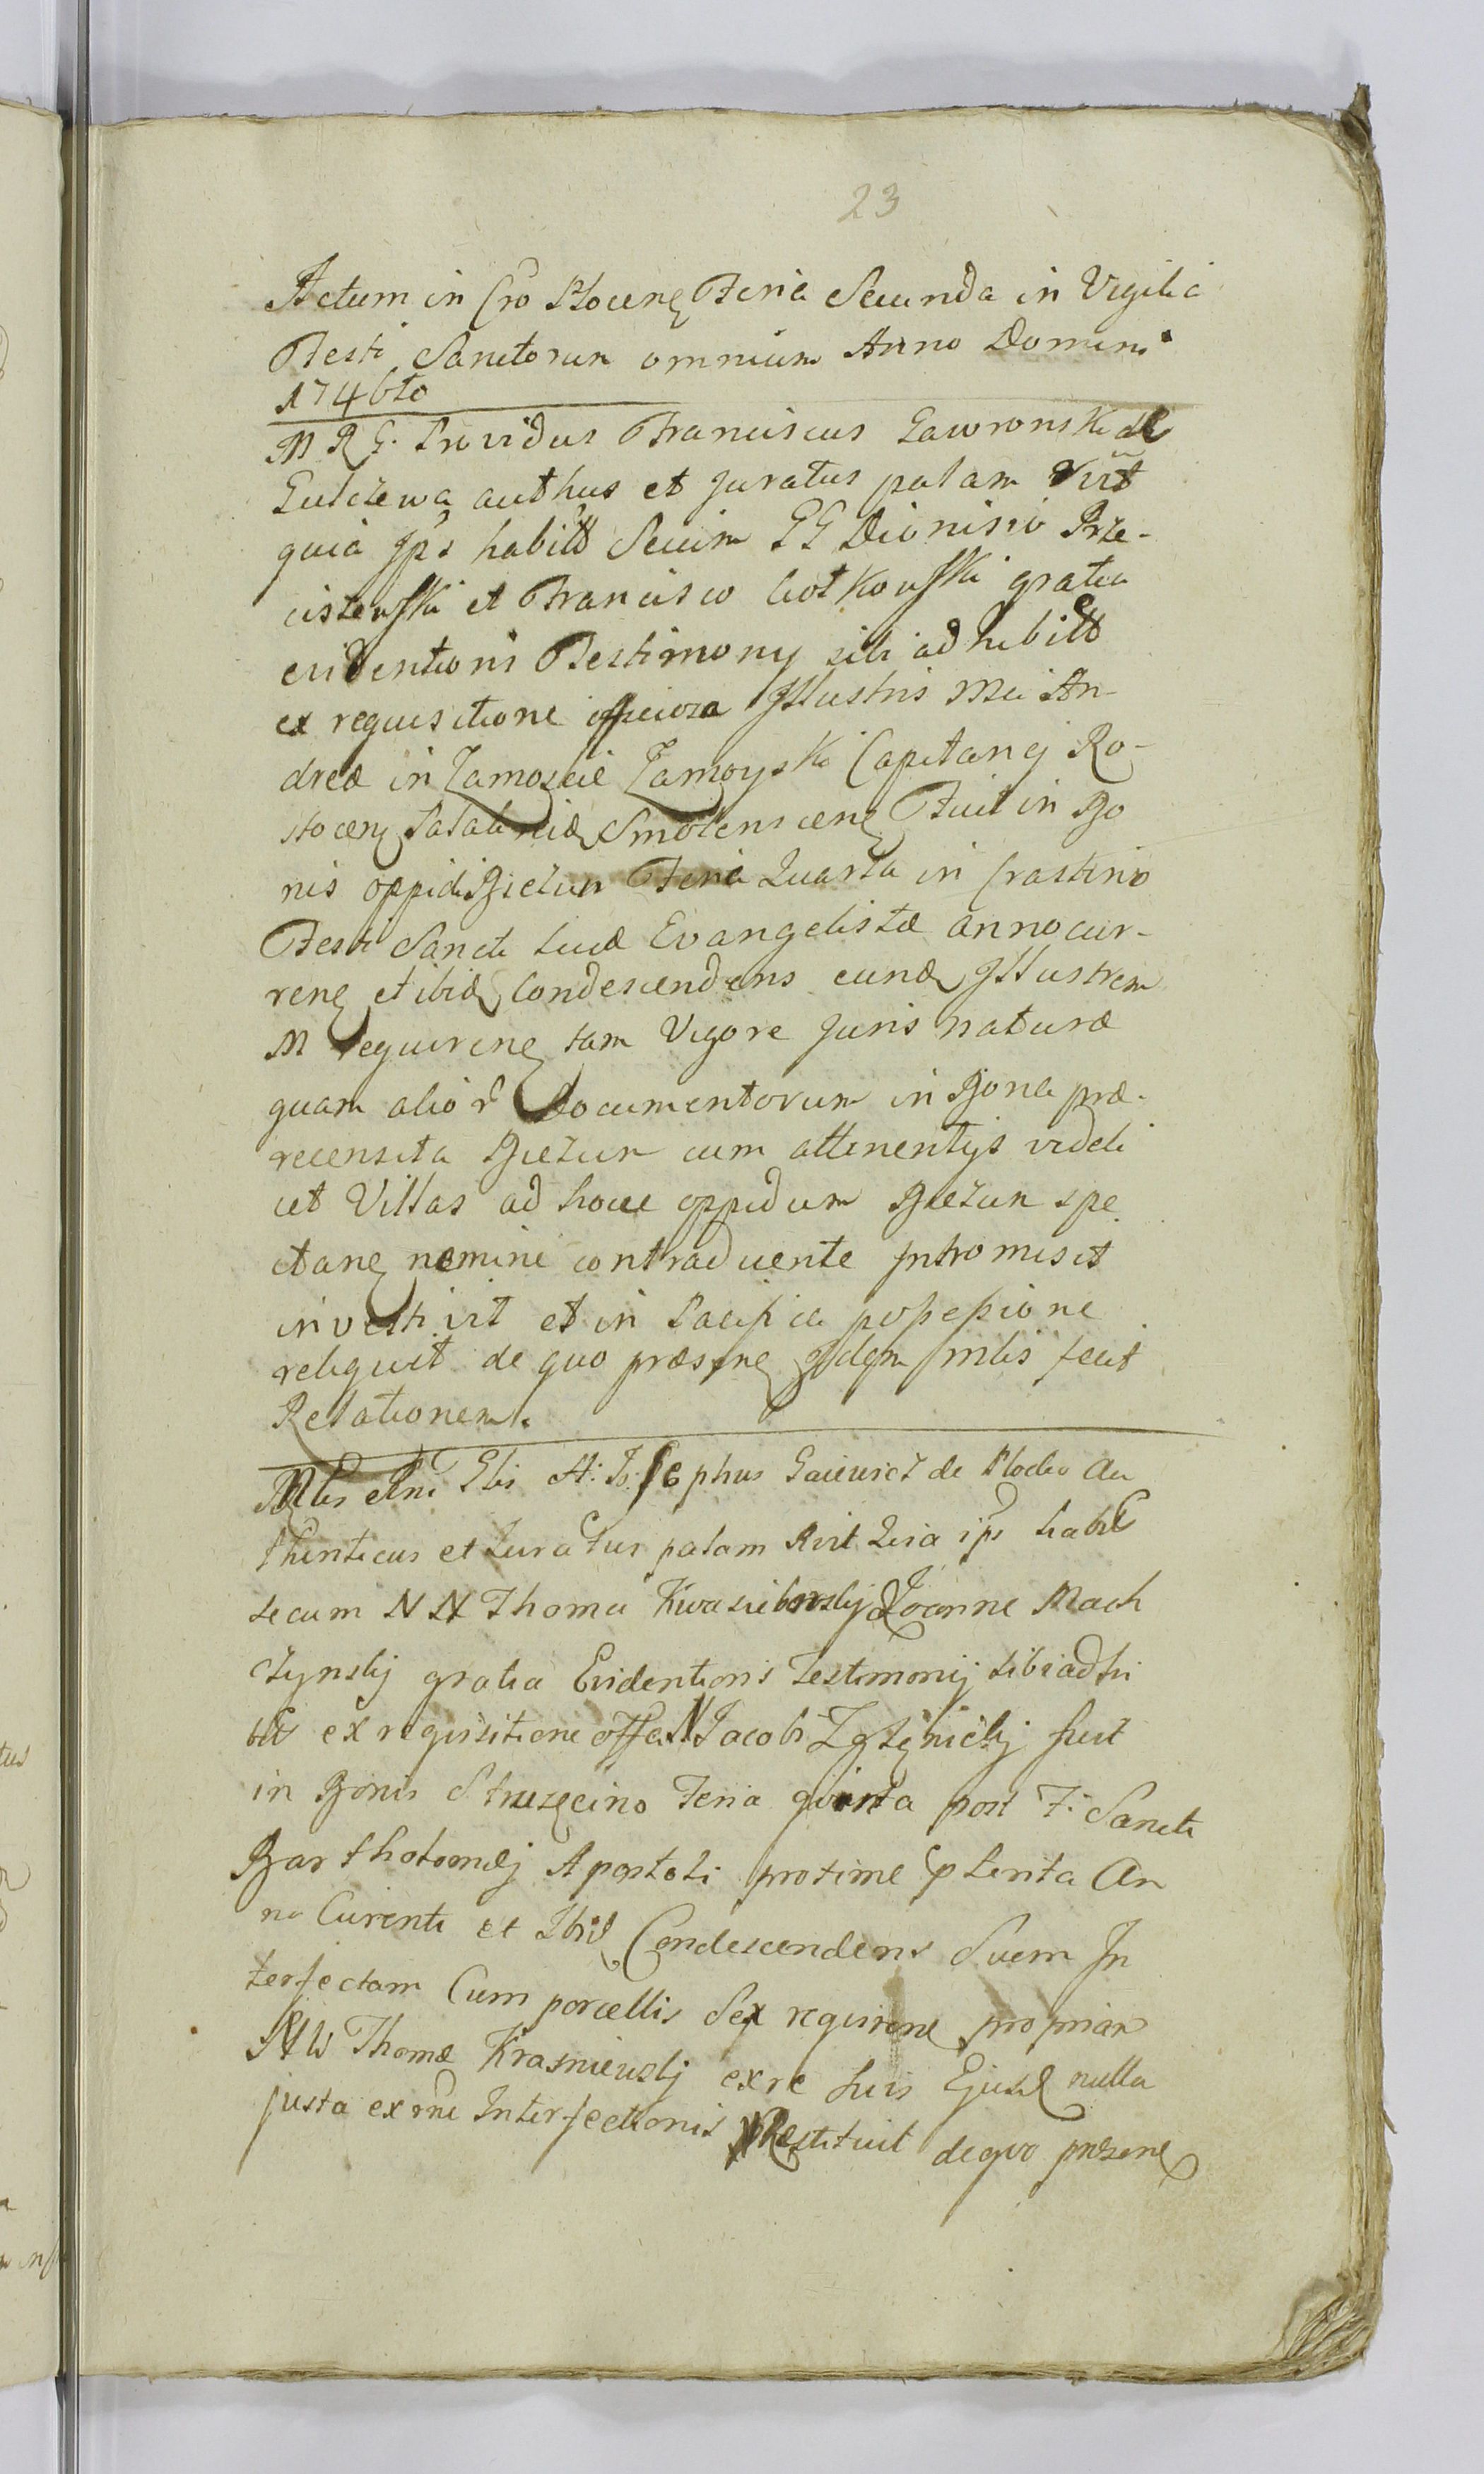 23
Actum in Cro Plocenq Feria Secunda in Vigilia
Festi Sanctorum omnium Anno Domini
1746to
M R G. Providus Franciscus Gawronski de
Gulczewa authus et Juratus palam
quia Ips habitt Secum GG Dionisio Prze-
cisze​wski et Francisco Ciotkowski gratia
evidentioris Testimony sibi adhibitt
ex requisitione officiosa Jllustris Mci An-
dreæ in Zamoscie Zamoyski Capitanej Ro-
stocenq Palatinidæ Smolenscenq Fuit in Bo
nis oppidi Biezun Feria Quarta in Crastino
Festi Sancti Lucæ Evangelistæ anno cur-
renq et ibidq Condescendens eundq Jllustrem
M requirenq tam Vigore Juris naturæ
quam alior Documentorum in Bona præ-
recensita Biezun cum attinentijs videli
cet Villas ad hocce oppidum Biezun spe
ctanq nemine contradicente Intromisit
investivit et in Pacifica possessione
reliquit de quo præsenq Idem mlis fecit
Relationem.
Mlis Rni Glis A: Josephus Gaiewicz de Plocko au
thenticus et Juratus palam Rvit Quia ips habit
secum NN Thoma Kwasiborskij Joanne Mach
czynskij gratia Evidentioris Testimonij sibi adhi
bit ex requisitione offa N Jacobi fuit
in Bonis Struzęcino Feria quinta post F. Sancti
Bartholomæj Apostoli proxime pterita An
no Curenti et Ibid Condescendens Suem In
terfectam Cum porcellis Sex requirenq propriam
Thomæ Krasniewskij ex re suis Ejusd nulla
justa ex rne Interfectionis Restituit de quo præsenq